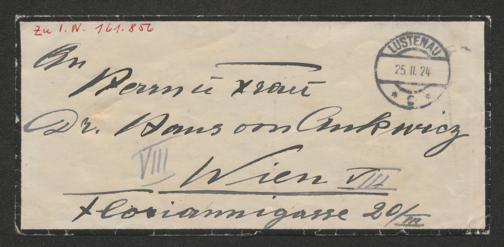 Zu I. N. 161.856
LUSTENAU
25. II. 24
* C *
An
Herrn u Frau
Dr. Hans von Ankwicz
VIII
Wien VIII
Florianigasse 20/III